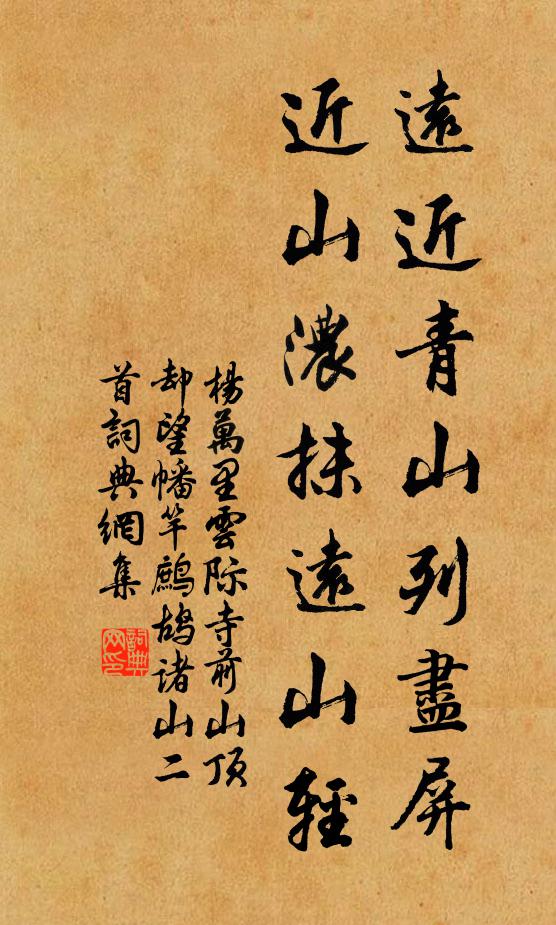 遠近青山列盡屏
近山濃抹遠山輕
楊萬里雲際寺前山頂
却望幡竿鷓鴣诸山二
首詞典網集
詞典網印